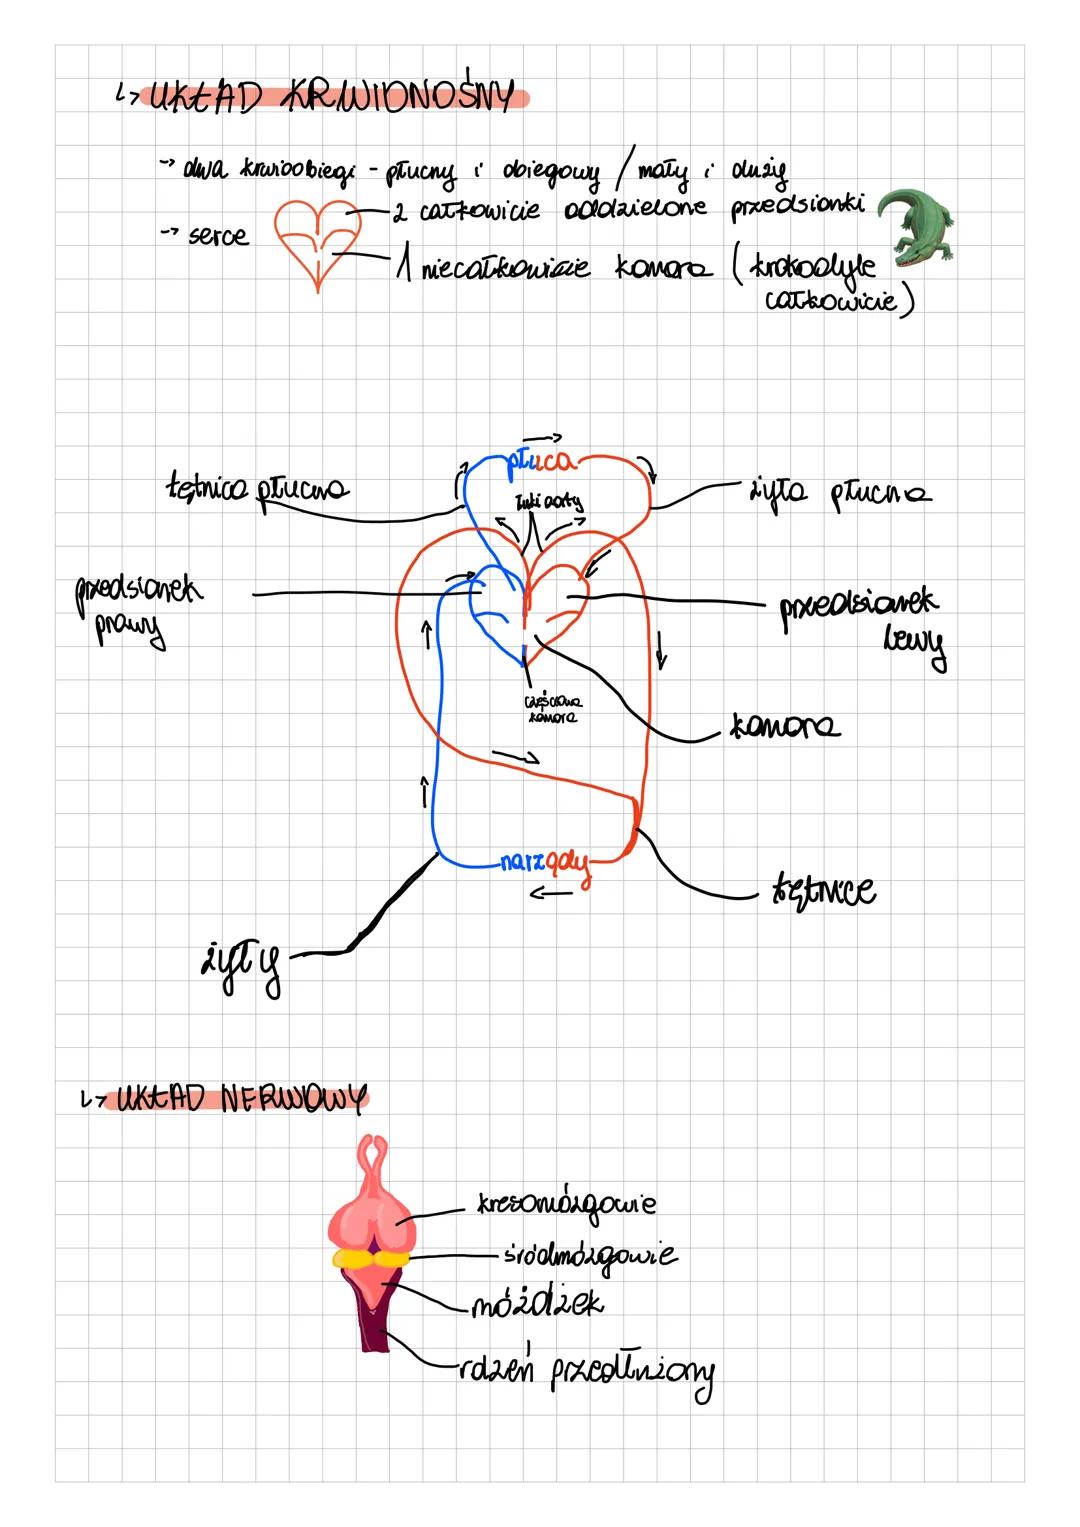 ↳ UKŁAD KRWIONOŚNY
→ dwa krwioobiegi - płucny i obiegowy / mały i duży
→ serce
2 całkowicie oddzielone przedsionki
1 niecałkowicie komora ( krokodyle
całkowicie )
płuca
tętnica płucna
łuki aorty
żyła płucna
przedsionek
prawy
przedsionek
lewy
częściowa
komora
komora
narządy
tętnice
żyły
↳ UKŁAD NERWOWY
kresomózgowie
śródmózgowie
móżdżek
rdzeń przedłużony